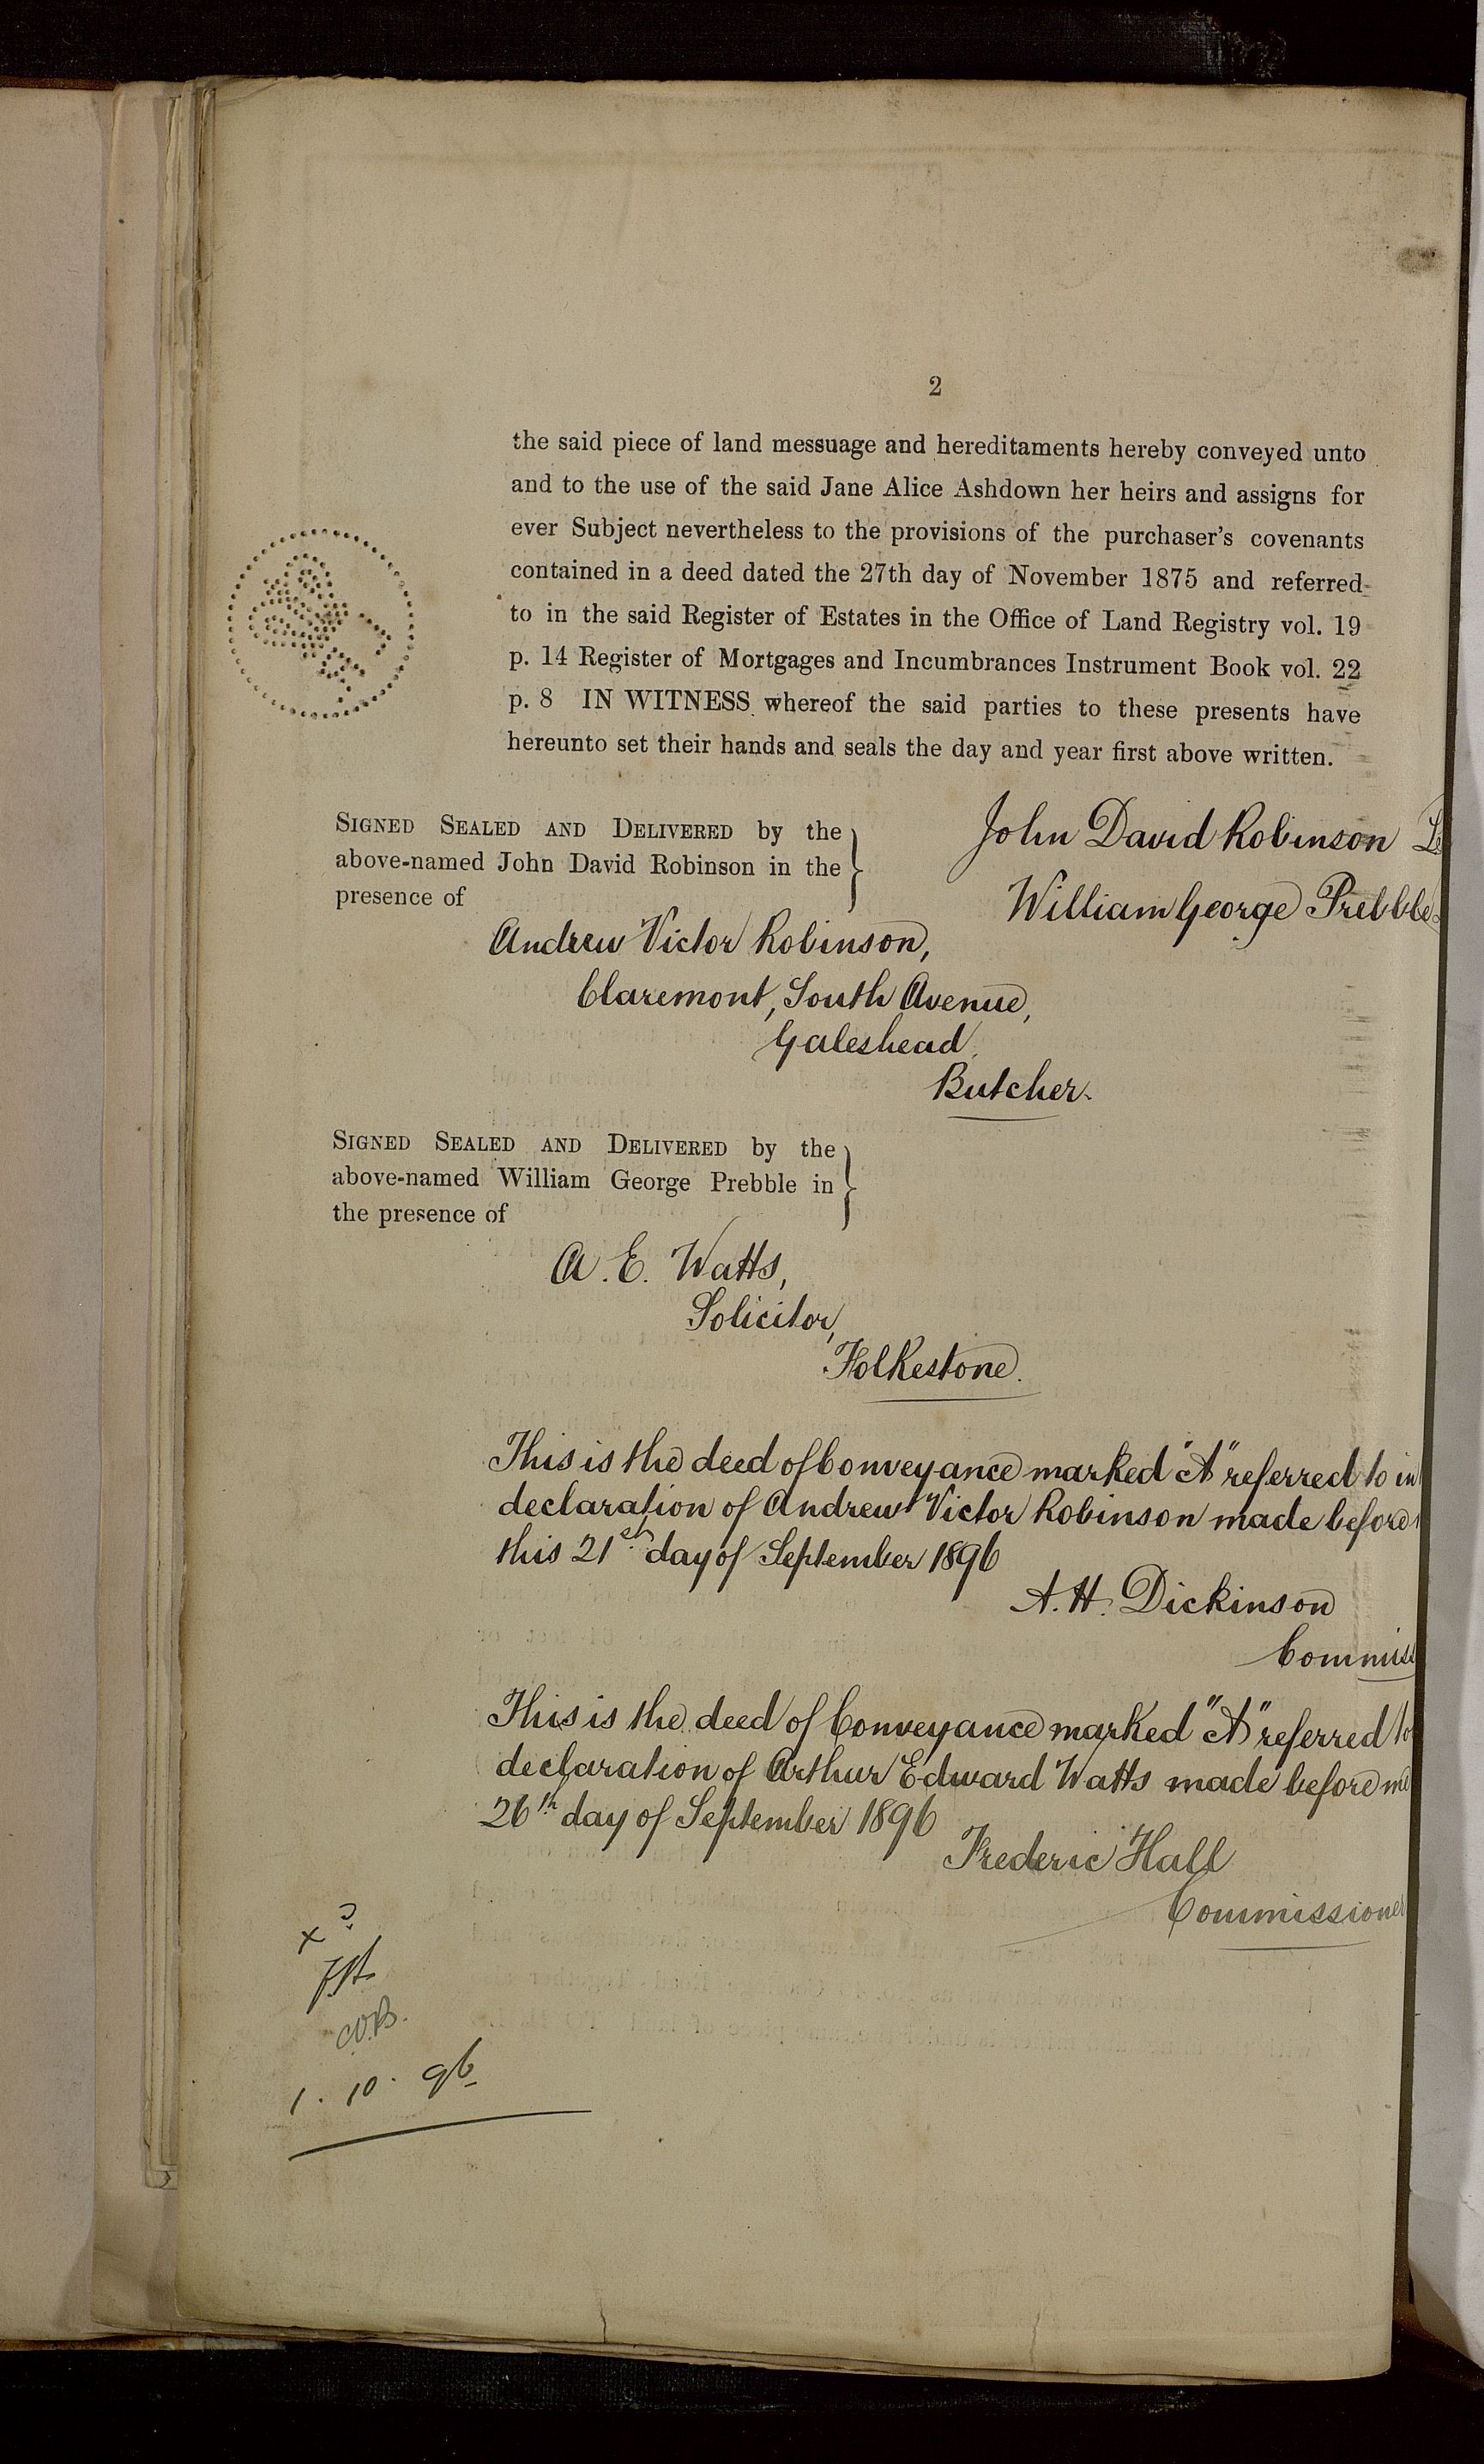 2
the said piece of land messuage and hereditaments hereby conveyed unto
and to the use of the said Jane Alice Ashdown her heirs and assigns for
ever Subject nevertheless to the provisions of the purchaser's covenants
contained in a deed dated the 27th day of November 1875 and referred
to in the said Register of Estates in the Office of Land Registry vol. 19
p. 14 Register of Mortgages and Incumbrances Instrument Book vol. 22
p. 8 IN WITNESS whereof the said parties to these presents have
hereunto set their hands and seals the day and year first above written.
SIGNED SEALED AND DELIVERED by the
above-named John David Robinson in the
presence of
John David Robinson
William George Prebble
Andrew Victor Robinson,
Claremont, South Avenue,
Gateshead
Butcher.
SIGNED SEALED AND DELIVERED by the
above-named William George Prebble in
the presence of
A. E. Watts,
Solicitor,
Folkestone.
This is the deed of Conveyance marked "A" referred to in
declaration of Andrew Victor Robinson made before
this 21st day of September 1896
A. H. Dickinson
Commiss
This is the deed of Conveyance marked "A" referred to
declaration of Arthur Edward Watts made before me
26th day of September 1896
Frederic Hall
Commissioner
1. 10. 96